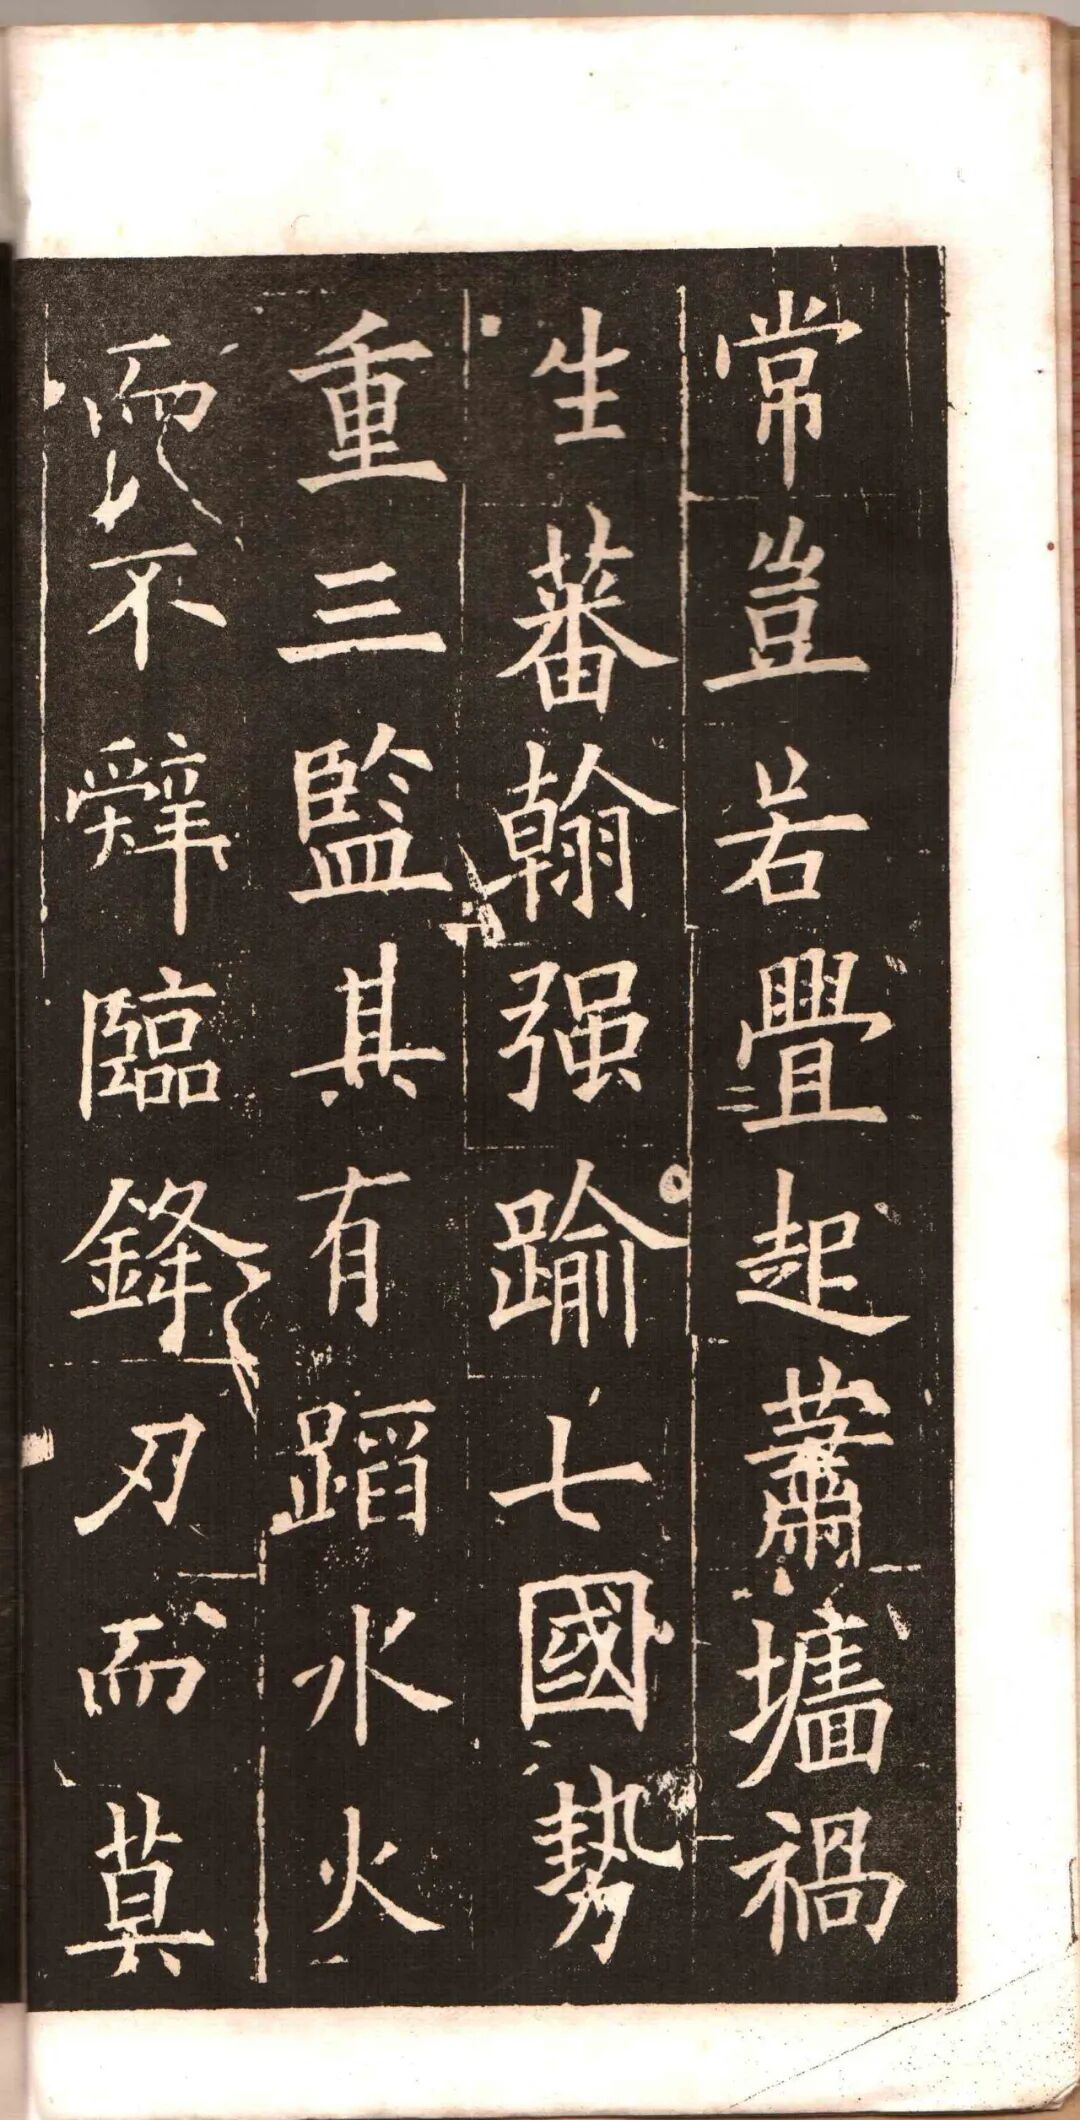 常豈若疊起蕭墻禍
生蕃翰强踰七國勢
重三監其有蹈水火
而不辭臨鋒刃而莫